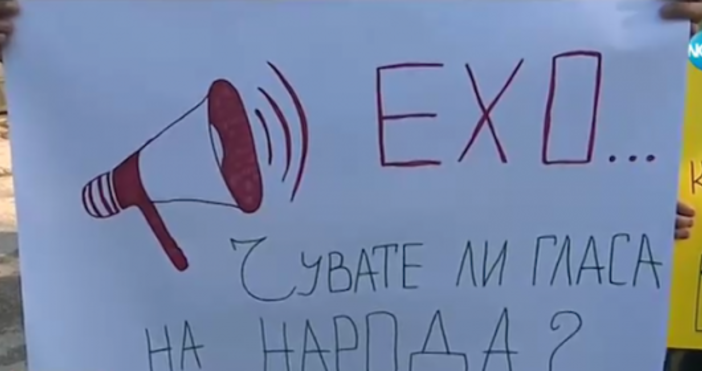 ЕХО...
ЧУВАТЕ ЛИ ГЛАСА
НА НАРОДА?